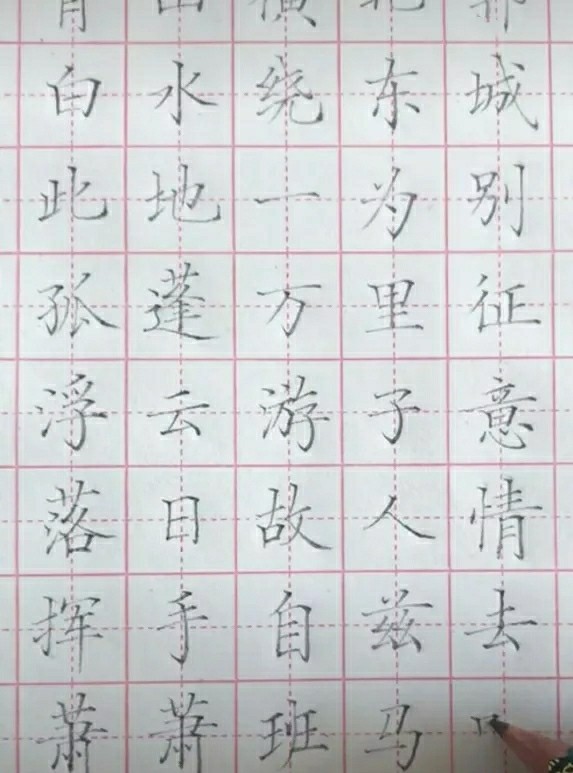 青山横北郭
白水绕东城
此地一为别
孤蓬万里征
浮云游子意
落日故人情
挥手自兹去
萧萧班马